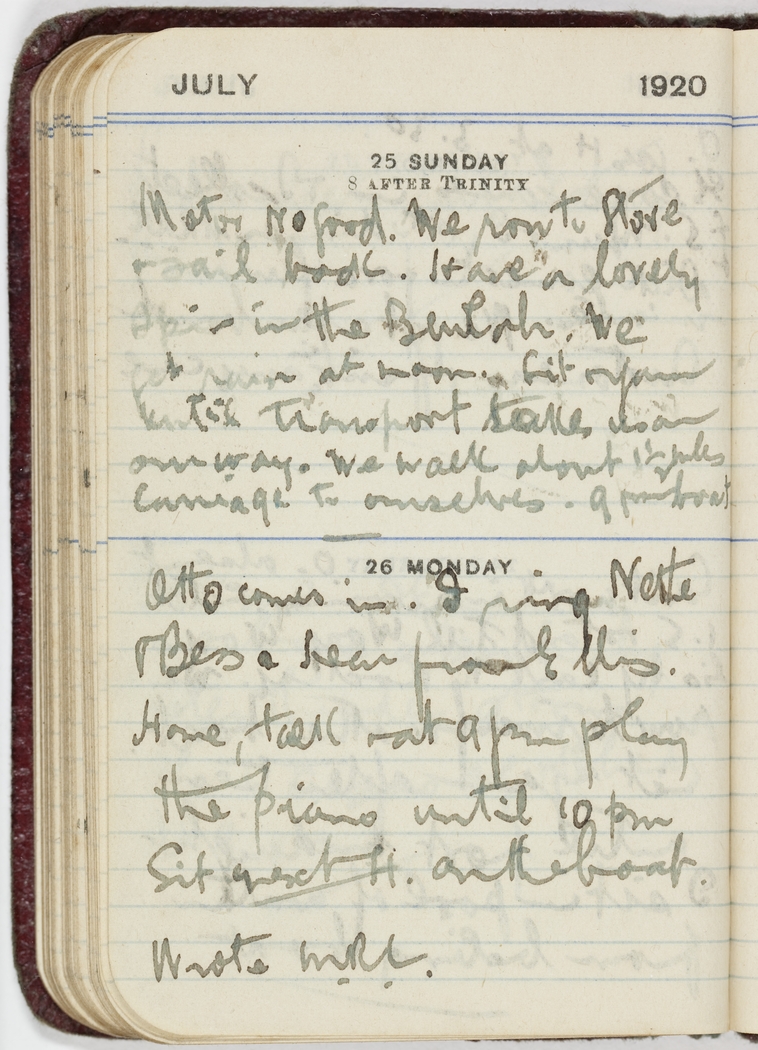 JULY 1920
25 SUNDAY
8 AFTER TRINITY
Motor no good. We row to Store
+ sail back. Have a lovely
Spin in the Beulah. We
get rain at noon. Sit
until Transport takes us on
our way. We walk about 1½ miles
Carriage to ourselves. 9 pm boat
26 MONDAY
Otto comes in. I ring Nettie
+ Bess + hear from Ellis.
Home, talk + at 9 pm play
the piano until 10 pm
Sit next H. on the boat.
Wrote